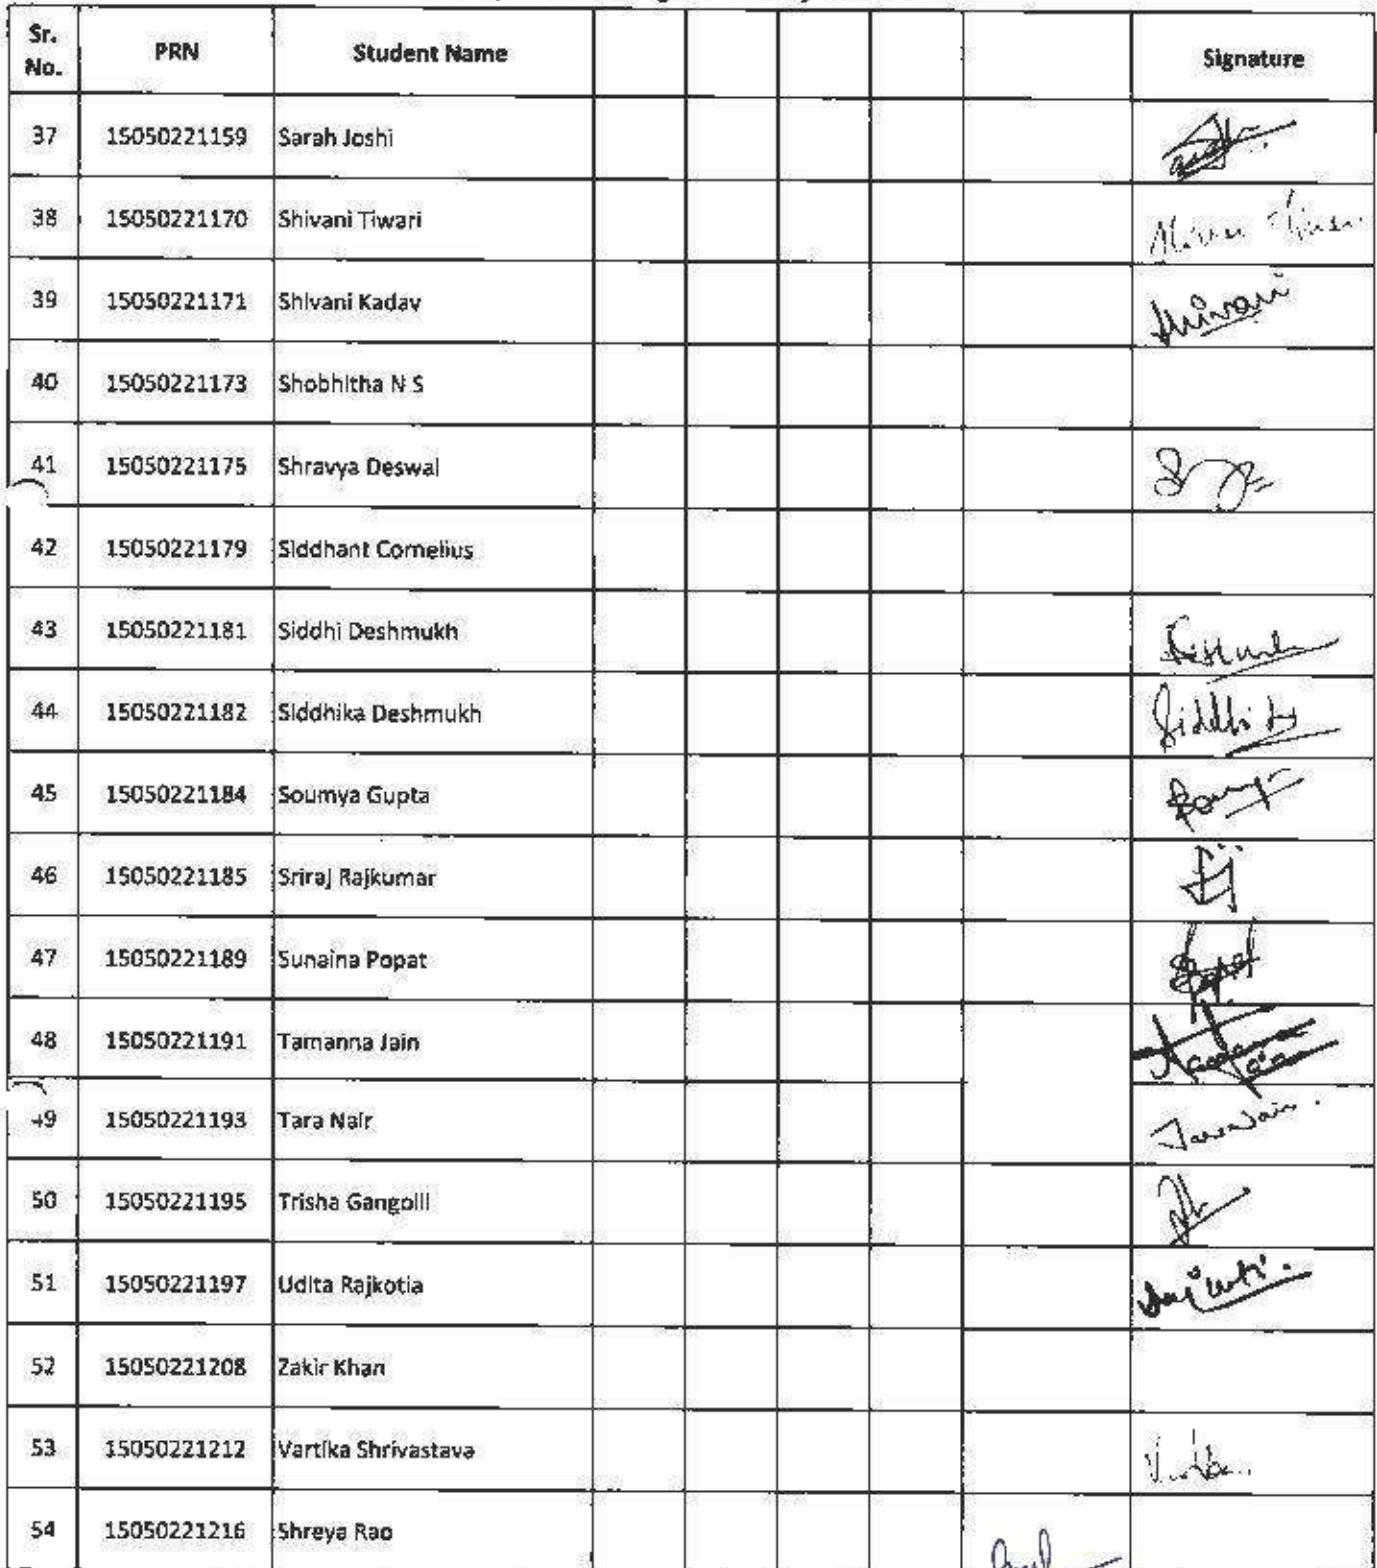 Sr. No. PRN Student Name Signature
37 15050221159 Sarah Joshi
38 15050221170 Shivani Tiwari
39 15050221171 Shivani Kadav Shivani
40 15050221173 Shobhitha N S
41 15050221175 Shravya Deswal
42 15050221179 Siddhant Cornelius
43 15050221181 Siddhi Deshmukh
44 15050221182 Siddhika Deshmukh
45 15050221184 Soumya Gupta
46 15050221185 Sriraj Rajkumar
47 15050221189 Sunaina Popat
48 15050221191 Tamanna Jain
49 15050221193 Tara Nair
50 15050221195 Trisha Gangolli
51 15050221197 Udita Rajkotia
52 15050221208 Zakir Khan
53 15050221212 Vartika Shrivastava
54 15050221216 Shreya Rao